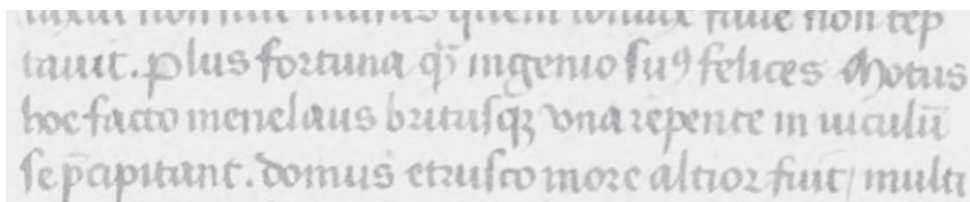 non quem siue non rep
tauit. Plus fortuna q̄ ingenio suꝰ felices Motus
hoc facto menelaus britusqꝫ vna repente in uiculū
se p̄cipitant. domus etrusco more altior fuit / multi